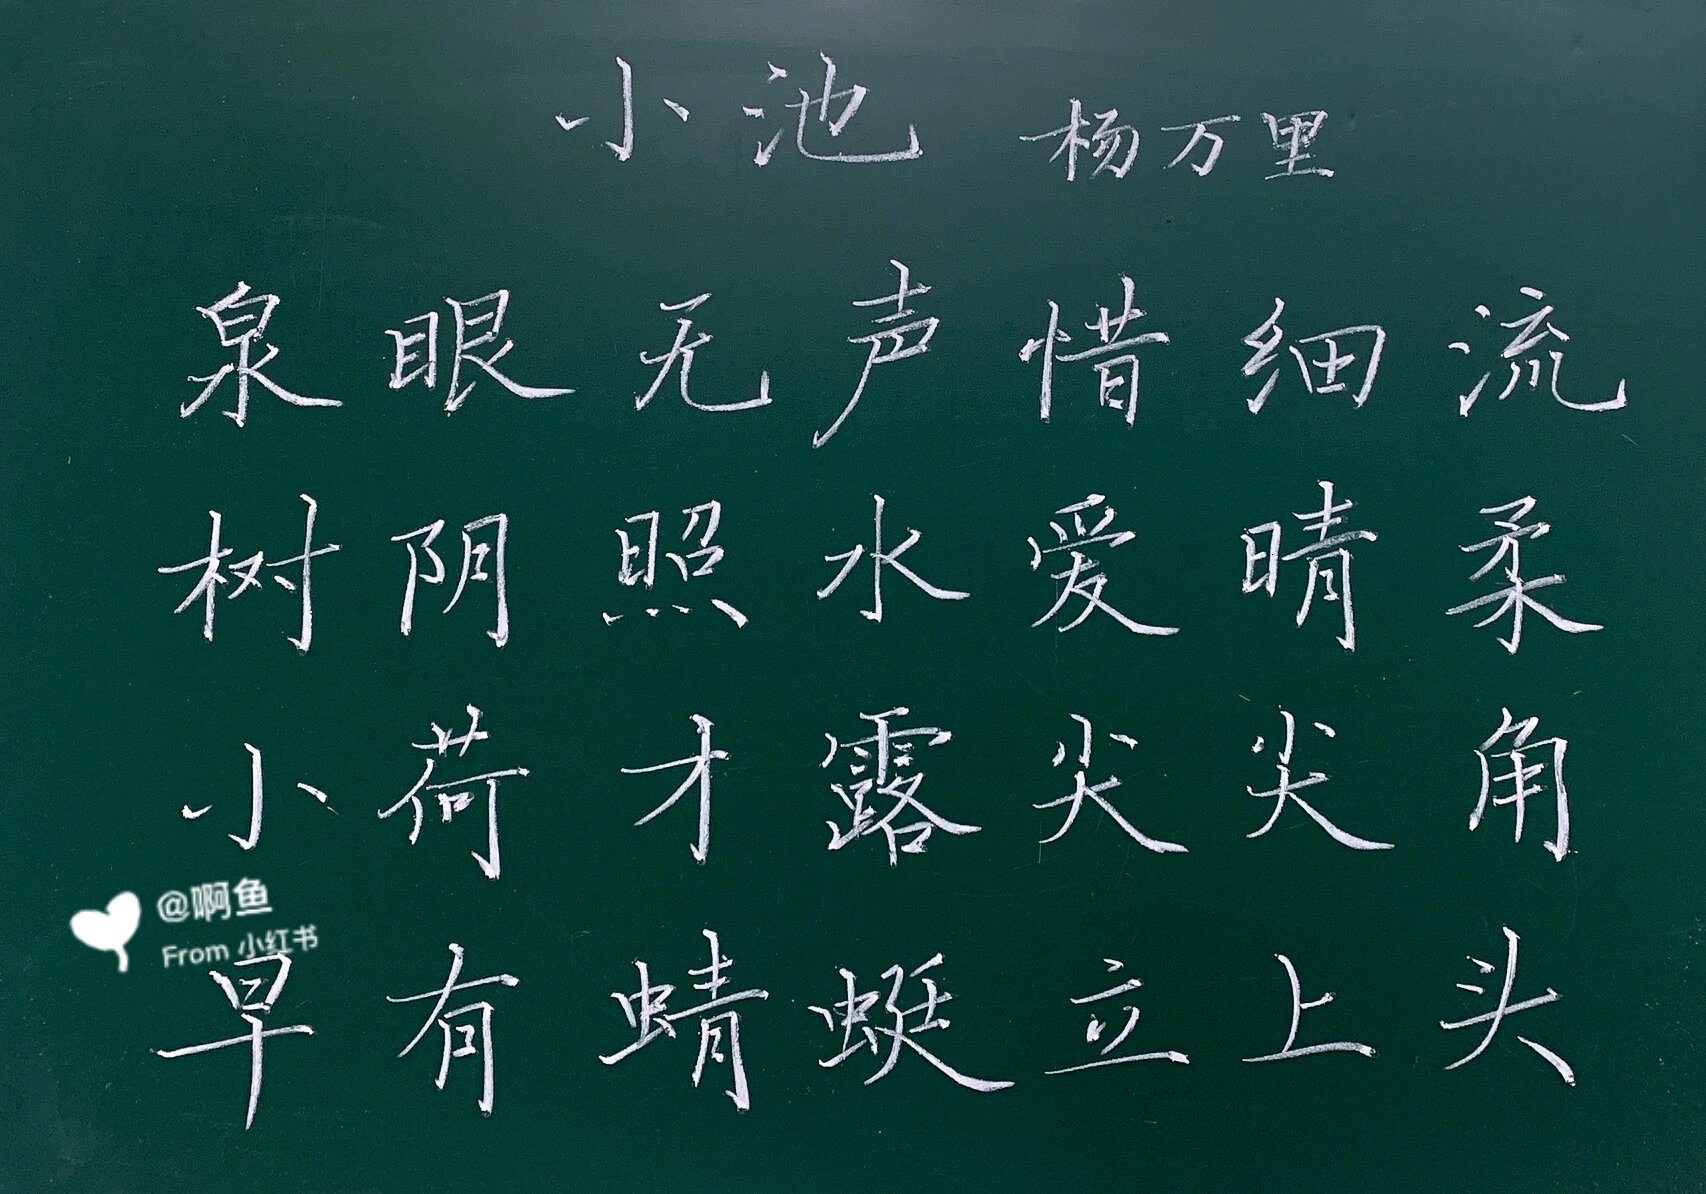 小池 杨万里
泉眼无声惜细流
树阴照水爱晴柔
小荷才露尖尖角
@啊鱼
From 小红书
早有蜻蜓立上头